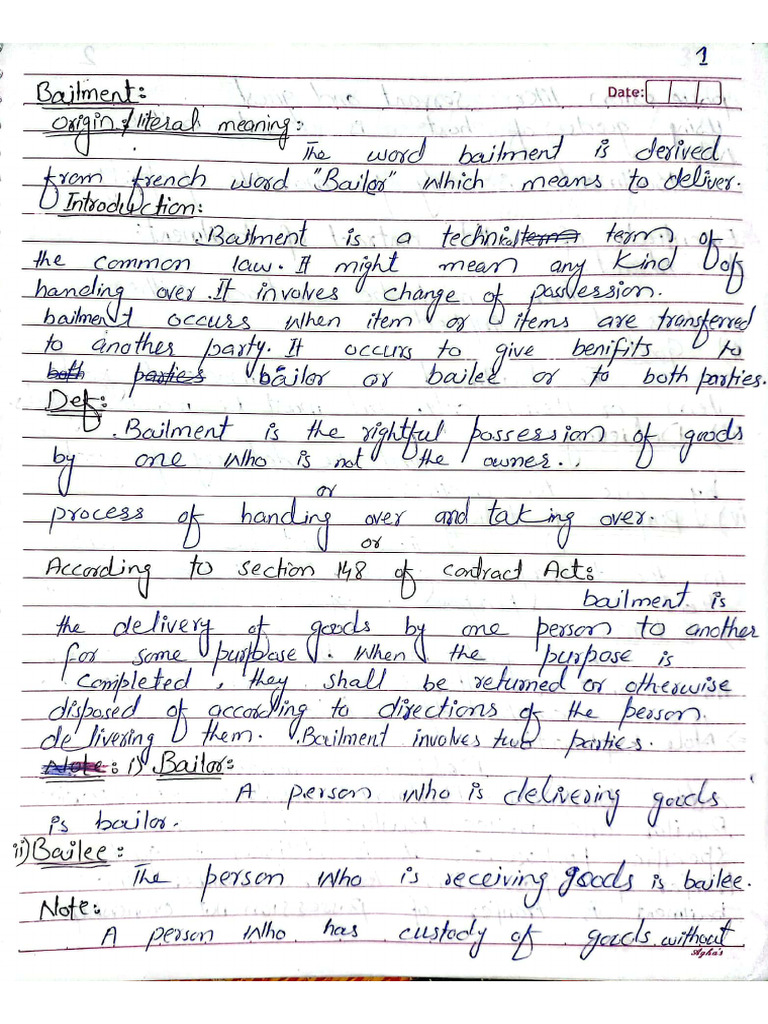 1
Bailment:
Date:
Origin & literal meaning:
The word bailment is derived
from french word "Bailor" which means to deliver.
Introduction:
Bailment is a technical term of
the common law. It might mean any kind of
handing over. It involves change of possession.
bailment occurs when item or items are transferred
to another party. It occurs to give benifits to
both parties bailor or bailee or to both parties.
Def:
Bailment is the rightful possession of goods
by one who is not the owner.
or
process of handing over and taking over.
or
According to section 148 of contract Act:
bailment is
the delivery of goods by one person to another
for some purpose. When the purpose is
completed, they shall be returned or otherwise
disposed of according to directions of the person
delivering them. Bailment involves two parties.
Note: i) Bailor:
A person who is delivering goods
is bailor.
ii) Bailee:
The person who is receiving goods is bailee.
Note:
A person who has custody of goods without
Agha's